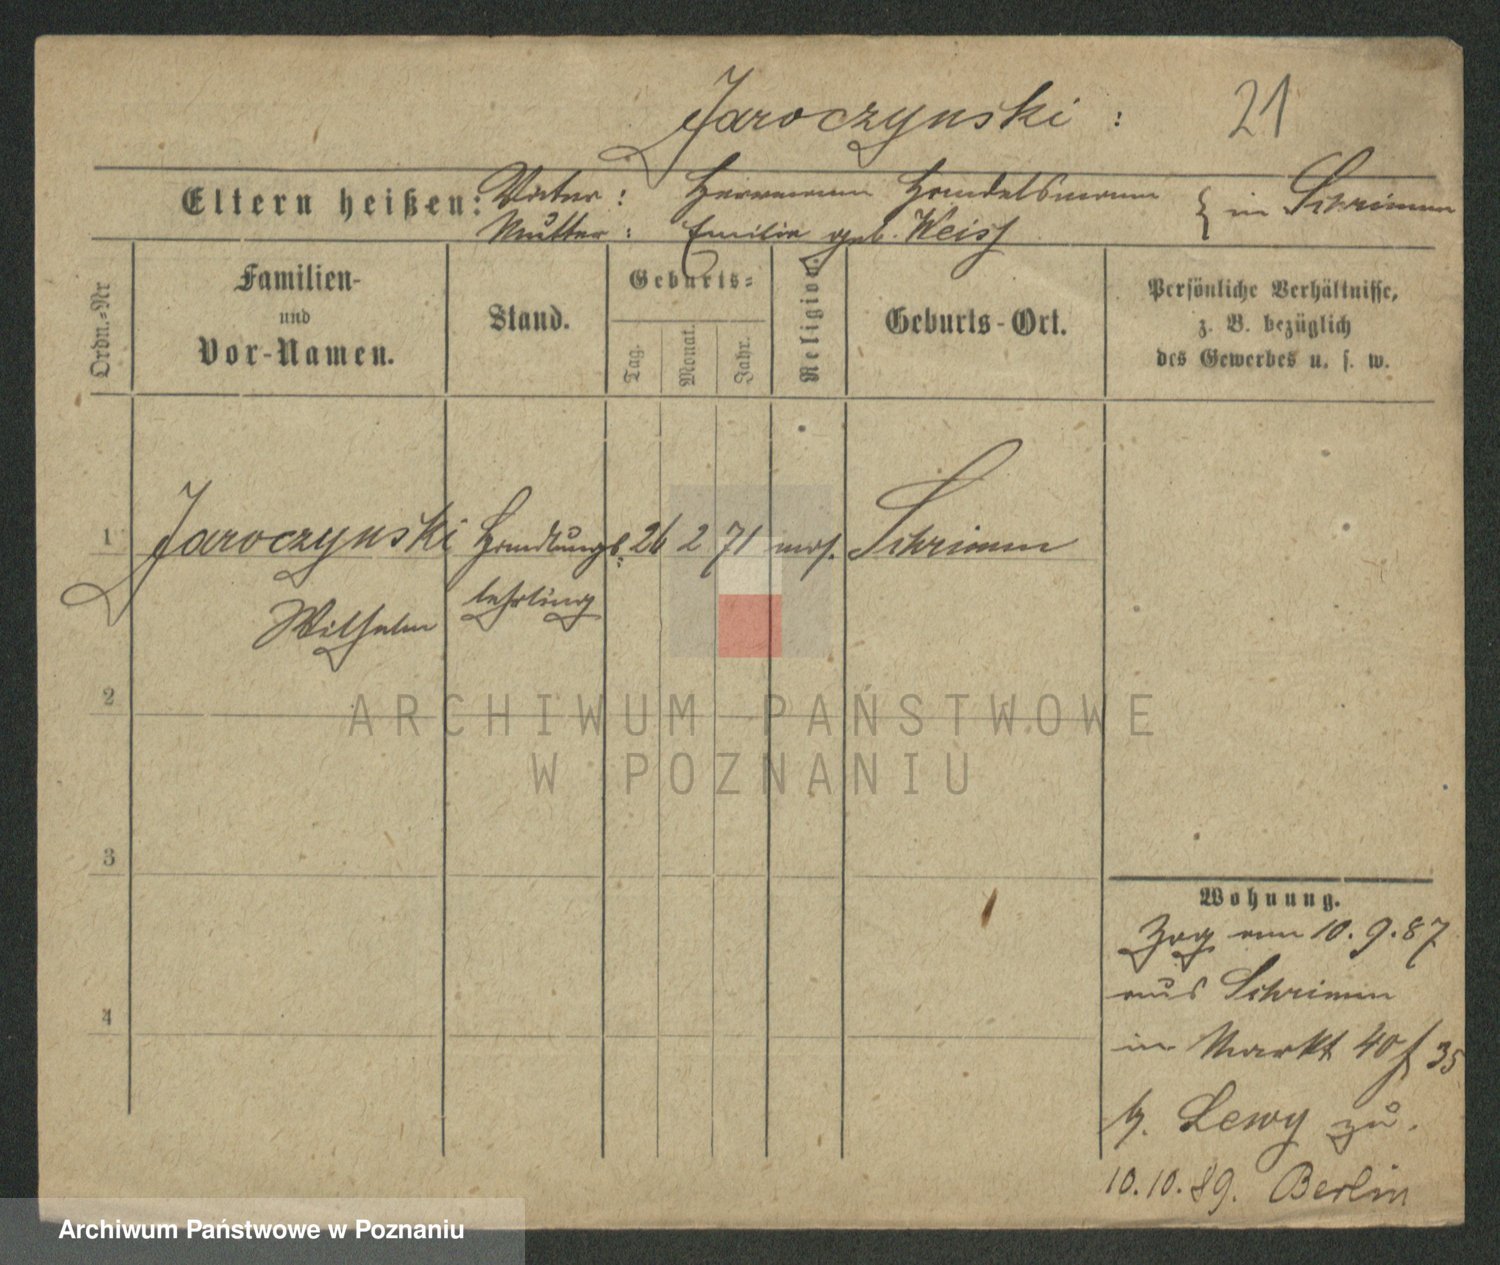 Jaroczynski : 21
Eltern heißen: Vater : Herrmann Handelsmann } in Schrimm
Mutter : Emilie geb. Weiss
Ordn.=Nr
Familien-
und
Vor-Namen.
Stand.
Geburts=
Tag. Monat. Jahr.
Religion.
Geburts-Ort.
Persönliche Verhältnisse,
z. B. bezüglich
des Gewerbes u. s. w.
1 Jaroczynski Handlungs= 26 2 71 mos. Schrimm
Wilhelm lehrling
2
3
4
Wohnung.
Zog am 10.9.87
aus Schrimm
in Markt 40 f 35
b. Lewy zu.
10.10.89. Berlin
ARCHIWUM PAŃSTWOWE
W POZNANIU
Archiwum Państwowe w Poznaniu